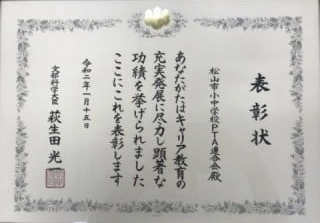 表彰状
松山市小中学校PTA連合会殿
あなたがたはキャリア教育の
充実発展に尽力し顕著な
功績を挙げられました
ここにこれを表彰します
令和二年一月十五日
文部科学大臣 萩生田光一